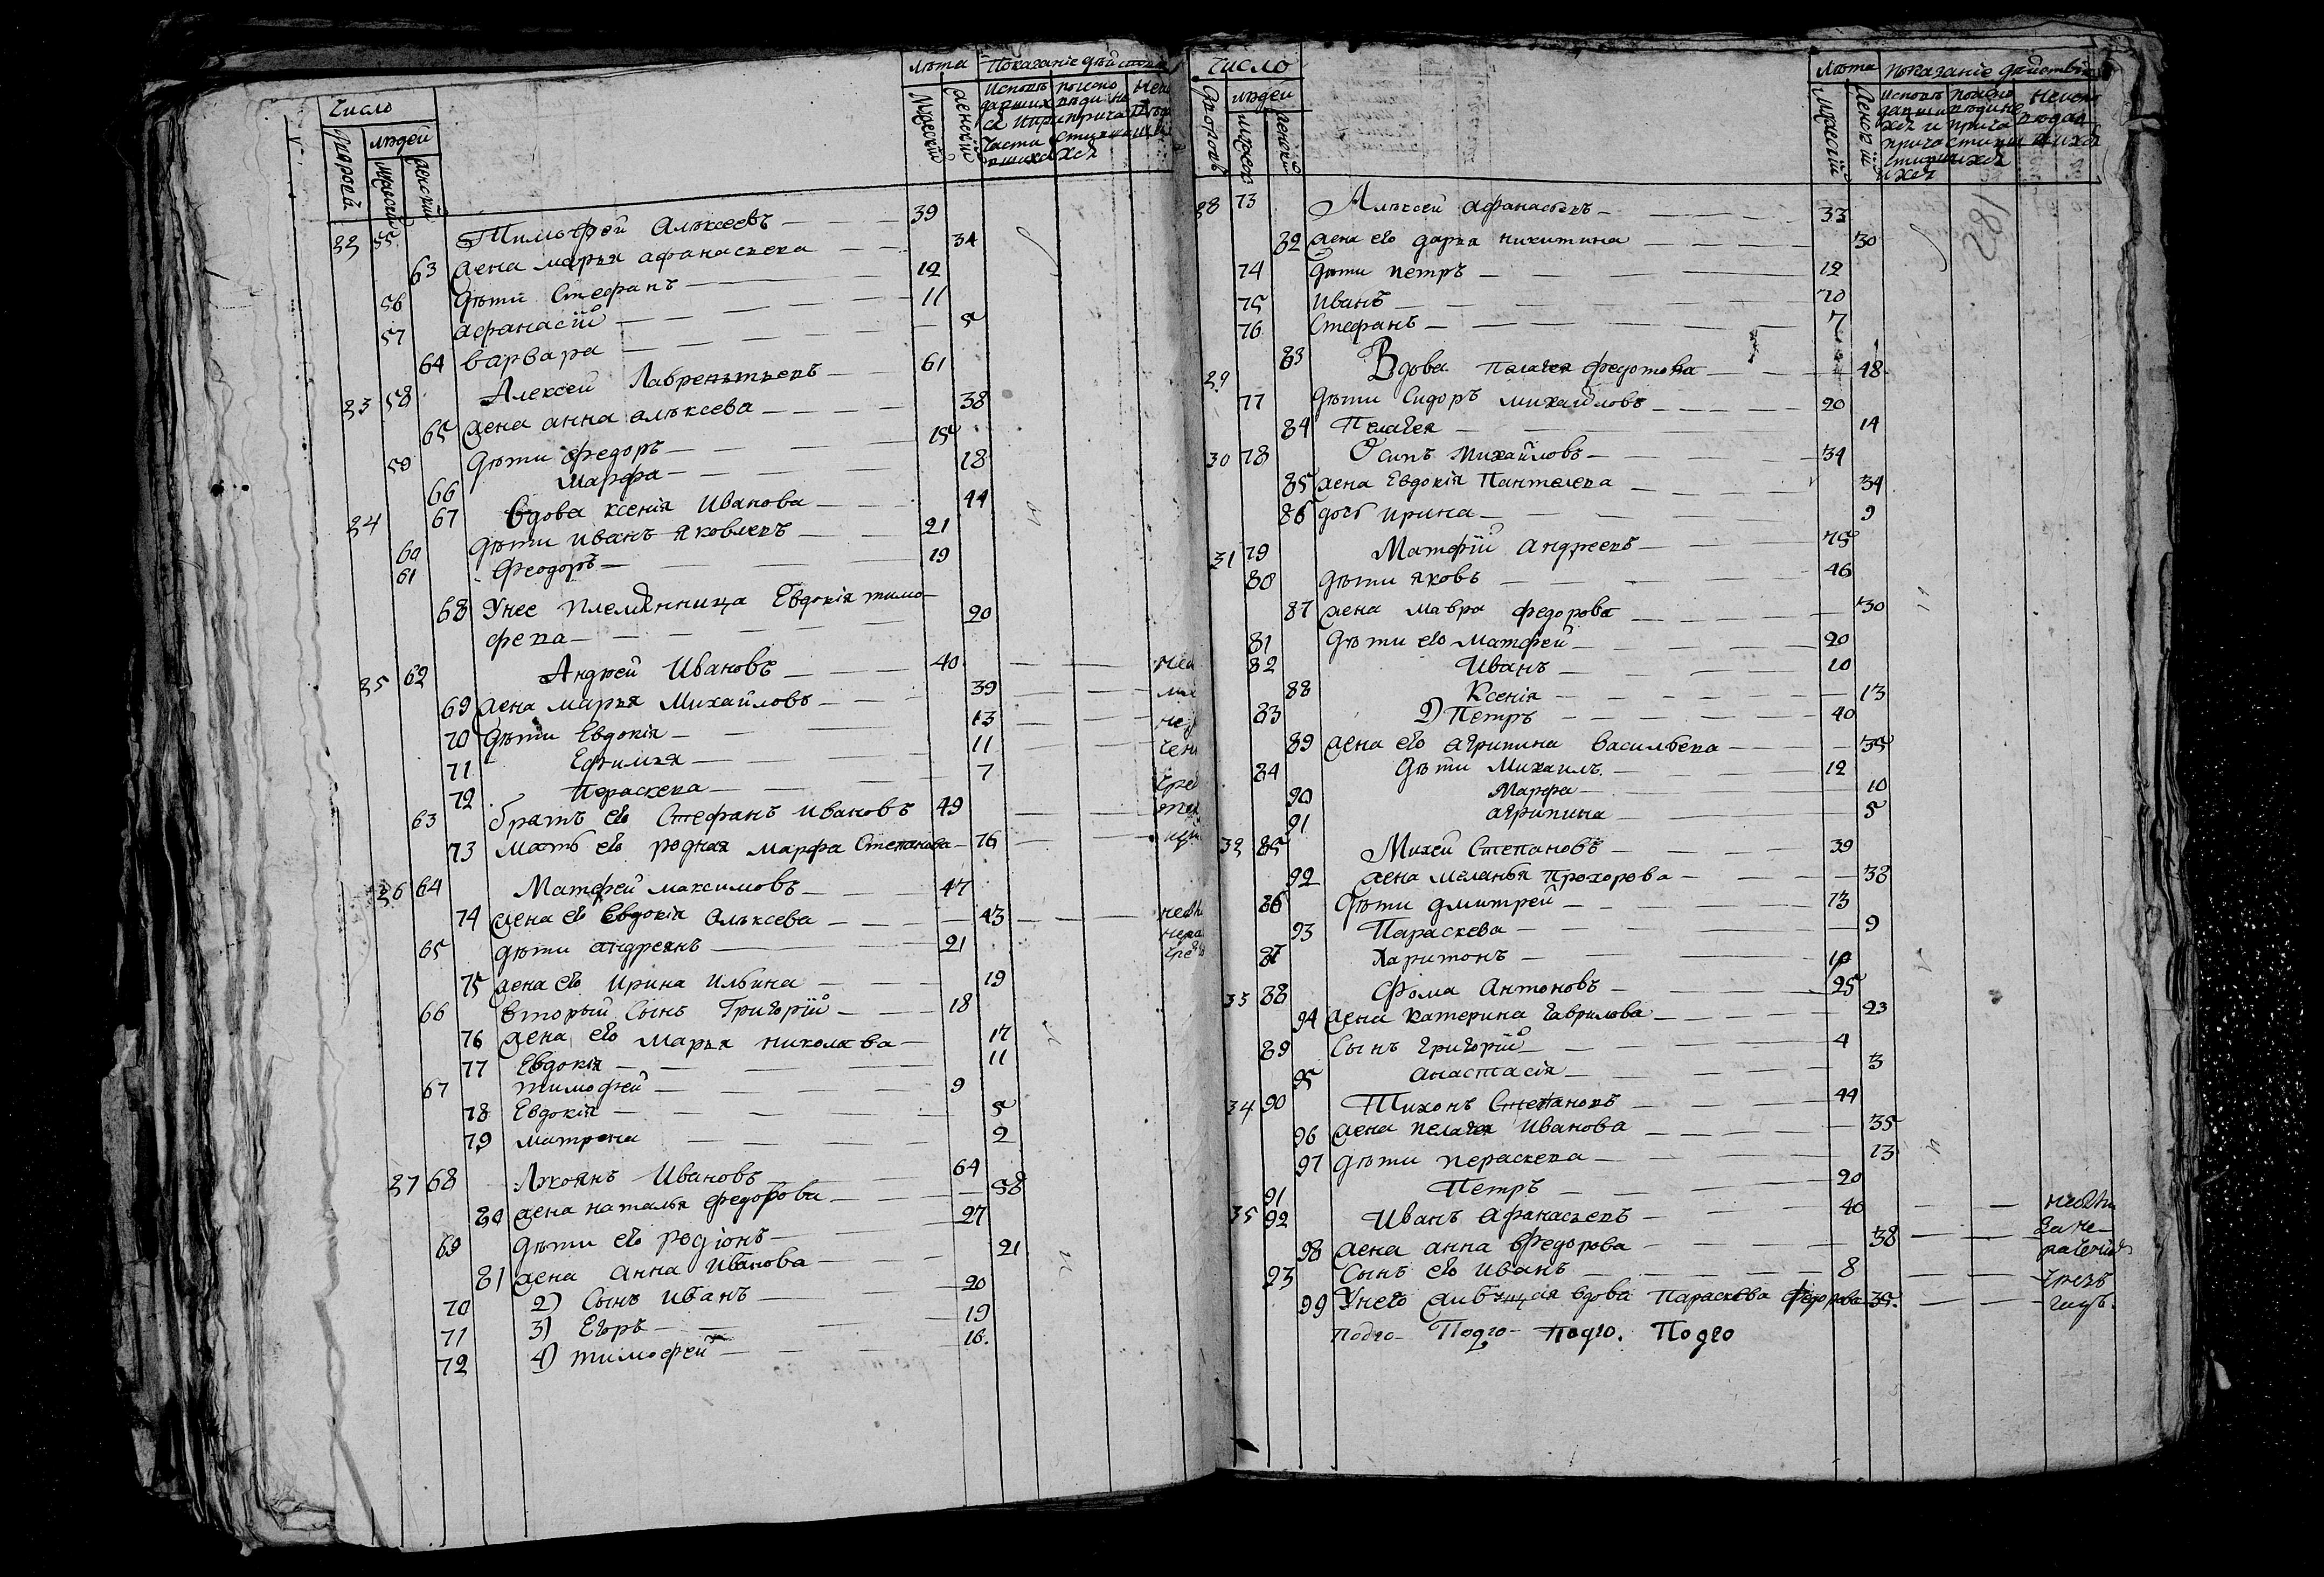 Число
людей
мужеский
женский
лѣта
Показаніе дѣйств
Мужеский
женский
22 55 Тимофей Алѣксеевъ 39
63 жена марья афанасьева 34
56 дѣти Стефанъ 12
57 афанасiй 11
64 варвара 5
23 58 Алексей Лаврентьевъ 61
65 жена анна алѣксева 38
59 дѣти федоръ 15
66 марфа 18
24 67 вдова ксенiя Иванова 44
60 дѣти иванъ яковлевъ 21
61 феодоръ 19
68 Унее племянница Евдокiя тимо
фева 20
25 62 Андрей Ивановъ 40
69 жена марья Михайловъ 39
70 дѣти Евдокiя 13
71 Ефимья 11
72 Пераскева 7
63 братъ его Стефанъ ивановъ 49
73 мать его родная марфа Степанова 76
26 64 Матфей максимовъ 47
74 жена его Евдокiя алѣксева 43
65 дѣти андреянъ 21
75 жена его ирина ильина 19
66 вторый сынъ Григорiй 18
76 жена его марья николаева 17
77 Евдокiя 11
67 тимофей 9
78 Евдокiя 5
79 матрена 2
27 68 Лукоянъ Ивановъ 64
80 жена наталья федорова 58
69 дѣти его родiонъ 27
81 жена анна иванова 21
70 2) сынъ иванъ 20
71 3) Егоръ 19
72 4) тимофей 16.
Число
людей
Дворовъ
мужеск
женский
лѣта
показанiе дѣйствiя
мужеский
женск ий
281
28 73 Алѣксей афанасьевъ 33
82 жена его дарья никитина 30
74 дѣти петръ 12
75 иванъ 10
76 Стефанъ 7
29 83 Вдова пелагея федотова 48
77 дѣти Сидоръ михайловъ 20
84 Пелагея 14
30 78 Осипъ михайловъ 34
85 жена Евдокiя Пантелева 34
86 дочь ирина 9
31 79 Матфiй андреевъ 75
80 дѣти яковъ 46
87 жена мавра федорова 30
81 дѣти его матфей 20
82 Иванъ 10
88 Ксенiя 13
83 2) Петръ 40
89 жена его агрипина васильева 35
84 дѣти михаилъ 12
90 марфа 10
91 агрипина 5
32 85 Михей Степановъ 39
92 жена меланья прохорова 38
86 дѣти дмитрей 13
93 Параскева 9
87 Харитонъ 10
33 88 Фома антоновъ 25
94 жена катерина гаврилова 23
89 Сынъ григорiй 4
95 анастасiя 3
34 90 Тихонъ Степановъ 44
96 жена пелагея Иванова 35
97 дѣти пераскева 13
91 Петръ 20
35 92 Иванъ афанасьевъ 40
98 жена анна федорова 38 за не
93 Сынъ его иванъ 8 раченiя
99 Унего живущая вдова параскева федорова 35.
Подго Подго Подго. Подго